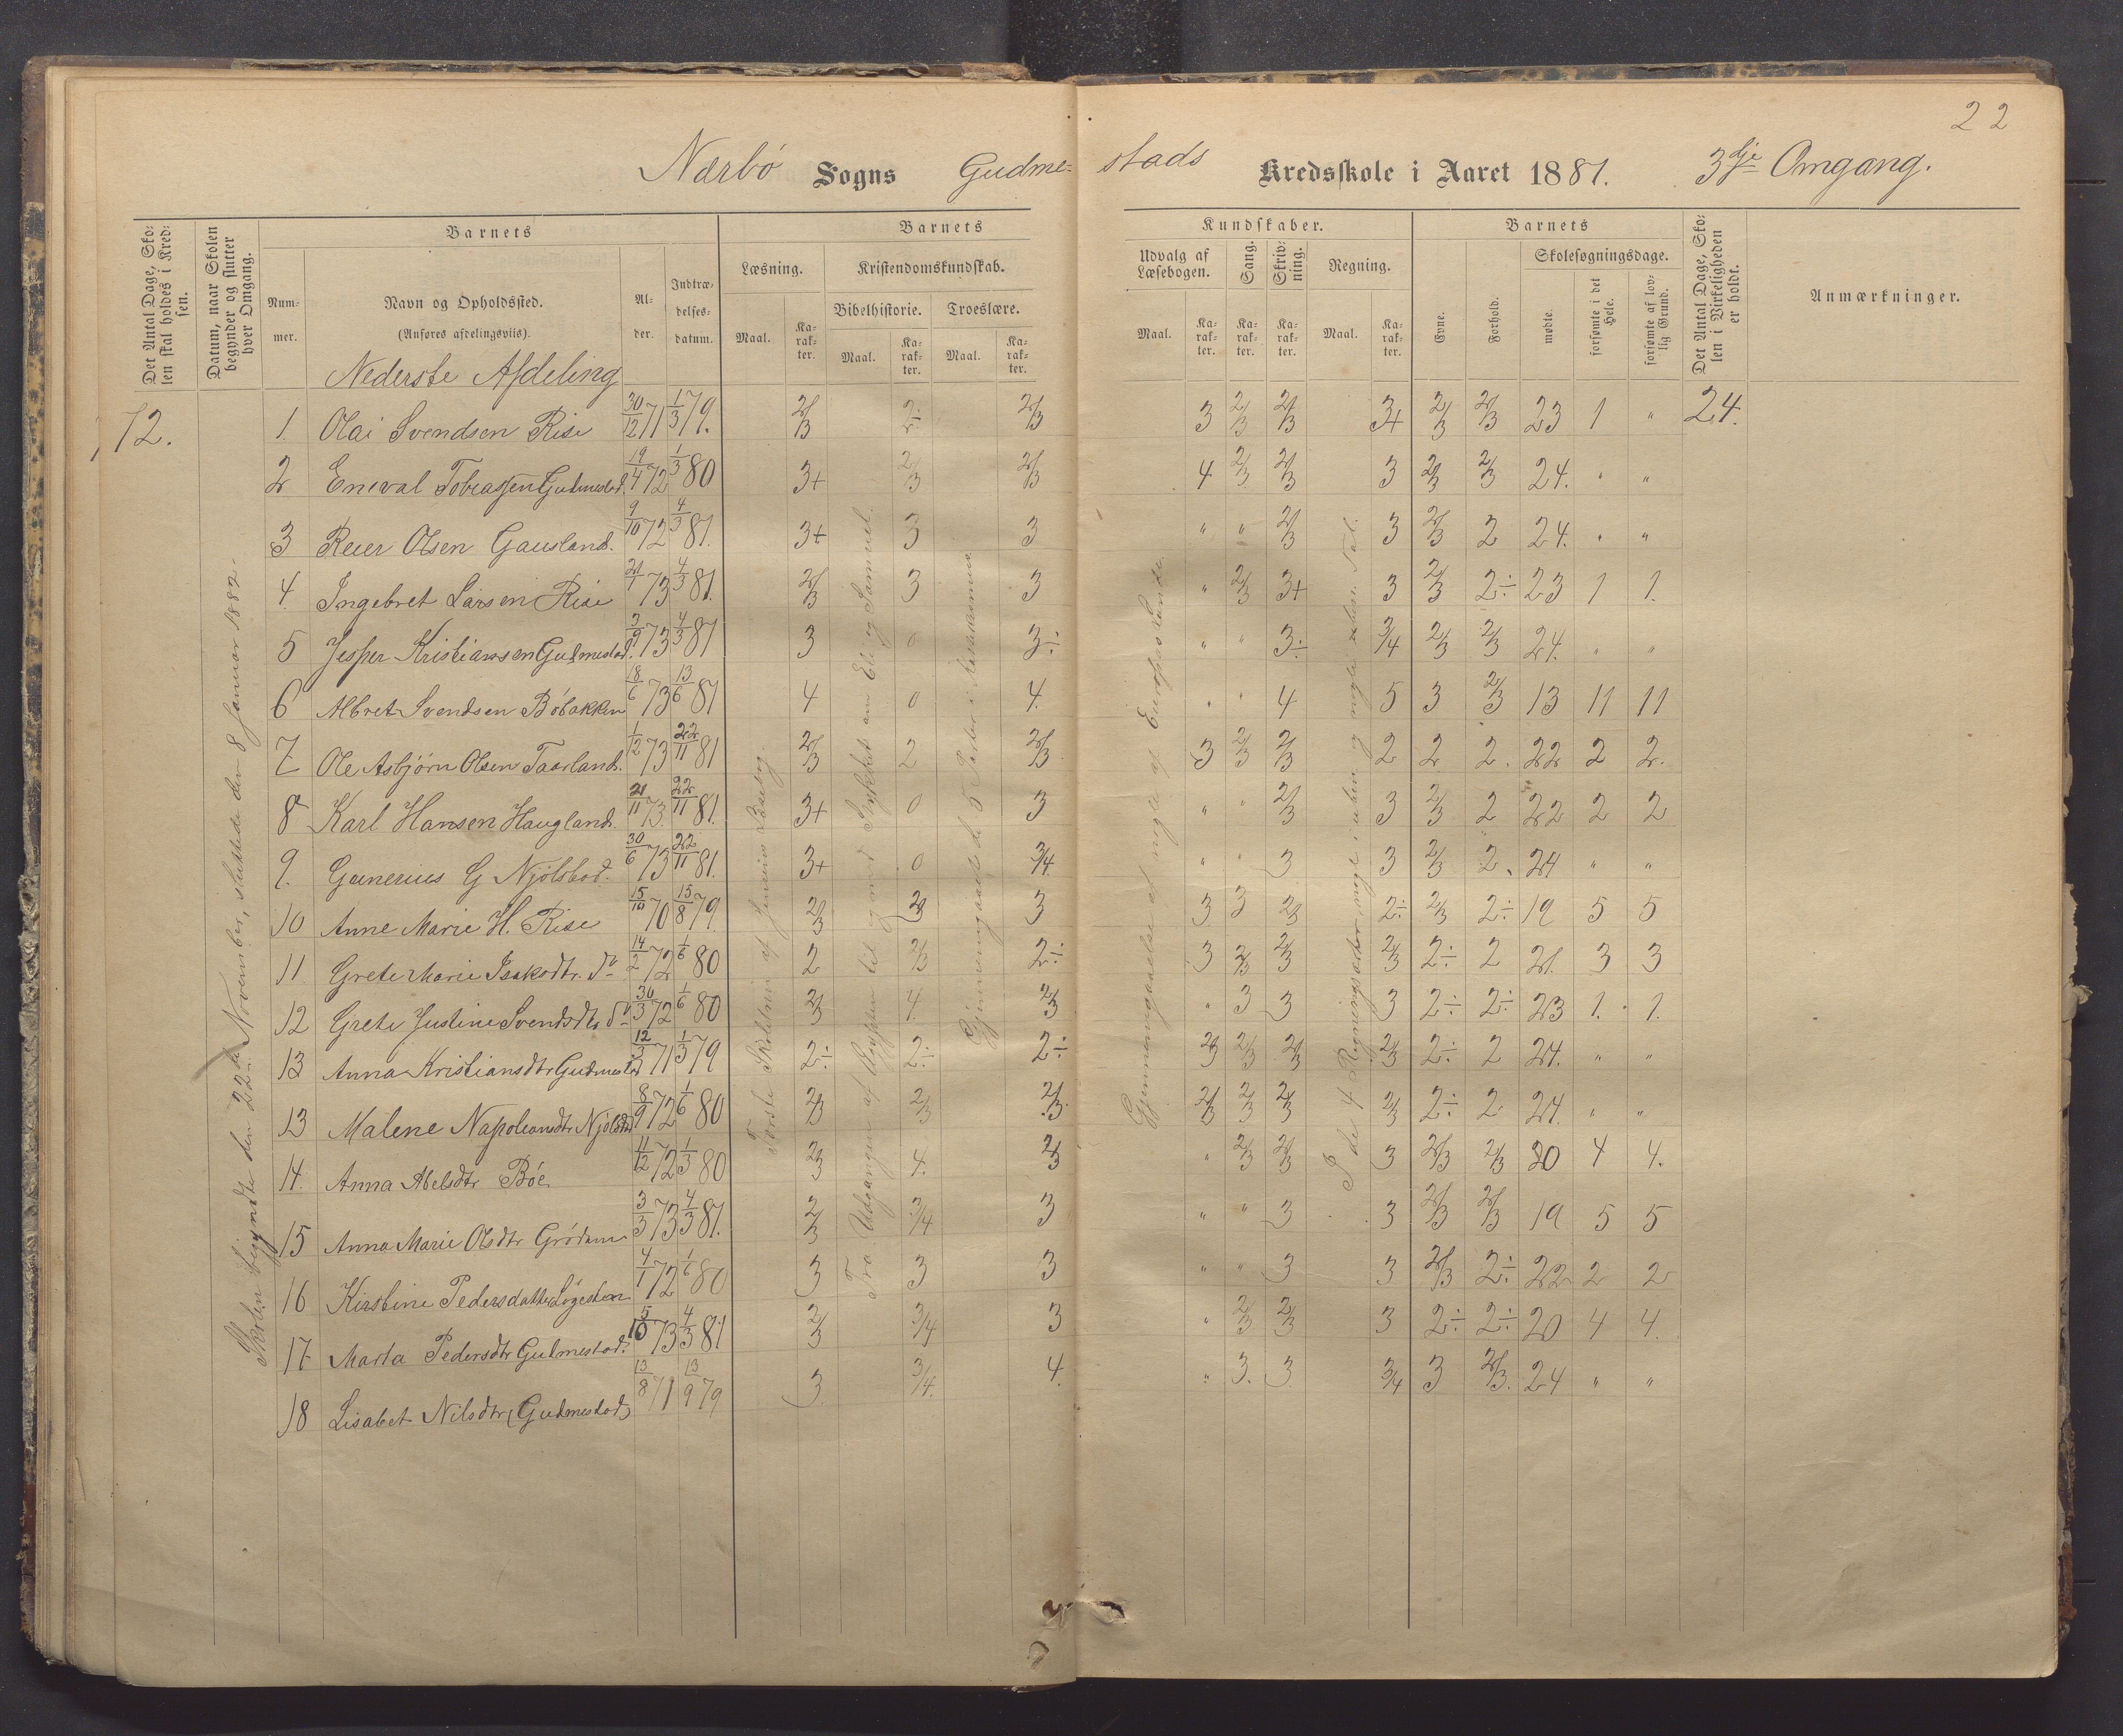 22
Nærbø Sogns Gudme- stads Kredsskole i Aaret 1881. 3dje Omgang.
Det Antal Dage, Skolen skal holdes i Kredsen.
Datum, naar Skolen begynder og slutter hver Omgang.
Barnets
Nummer.
Navn og Opholdssted.
(Anføres afdelingsviis).
Alder.
Indtrædelsesdatum.
Barnets Kundskaber.
Læsning. Maal. Karakter.
Kristendomskundskab.
Bibelhistorie. Maal. Karakter.
Troeslære. Maal. Karakter.
Udvalg af Læsebogen. Maal. Karakter.
Sang. Karakter.
Skrivning. Karakter.
Regning. Maal. Karakter.
Barnets
Evne.
Forhold.
Skolesøgningsdage.
mødte.
forsømte i det Hele.
forsømte af lovlig Grund.
Det Antal Dage, Skolen i Virkeligheden er holdt.
Anmærkninger.
Nederste Afdeling
72.
Skolen begyndte den 22de November, sluttede den 8 Januar 1882.
1. Olai Svendsen Rise 30/12 71 1/3 79. 2/3 2÷ 2/3 3 2/3 2/3 3+ 2/3 2/3 23 1 " 24.
2 Eneval Tobiassen Gudmestad. 19/4 72 1/3 80 3+ 2/3 2/3 4 2/3 2/3 3 2/3 2/3 24. " "
3 Reier Olsen Gausland. 9/10 72 4/3 81. 3+ 3 3 " " 2/3 3 2/3 2 24. " "
4. Ingebret Larsen Rise 21/1 73 4/3 81. 2/3 3 3 " 2/3 3+ 3 2/3 2÷ 23 1 1.
5 Jesper Kristiansen Gudmestad. 3/9 73 4/3 81 3 0 3÷ " " 3÷ 3/4 2/3 2/3 24. " "
6 Albret Svendsen Bøbakken 18/6 73 13/6 81 4 0 4. " " 4 5 3 2/3 13 11 11
7 Ole Asbjørn Olsen Taarland. 1/12 73 22/11 81 2/3 2 2/3 3 2/3 2/3 2 2 2. 22 2 2.
8 Karl Hansen Haugland. 21/11 73. 22/11 81. 3+ 0 3 " " 2/3 3 2/3 2 22 2 2
9. Gunerius G Njølstad. 30/6 73 22/11 81. 3+ 0 3/4 " " 3 3 2/3 2. 24 " "
10 Anne Marie H. Rise 15/10 70 15/8 79. 2/3 2/3 3 3 3 2/3 2÷ 2/3 2÷ 19 5 5
11. Grete Marie Isaksdtr. do 14/2 72 1/6 80 2 2/3 2÷ 3 2/3 2/3 2/3 2÷ 2 21. 3 3
12 Grete Justine Svendsdtr do 30/3 72 1/6 80 2/3 4. 2/3 " 3 3 3 2÷ 2÷ 23 1. 1.
13 Anna Kristiansdtr Gudmestad 12/3 71 1/3 79 2÷ 2÷ 2÷ 2/3 2/3 2/3 2/3 2÷ 2 24. " "
13 Malene Napoleonsdtr Njølstad 8/9 72 1/6 80 2/3 2/3 2/3 2/3 2/3 2/3 2/3 2÷ 2 24. " "
14. Anna Abelsdtr Bøe. 11/12 72 1/3 80 2/3 4. 2/3 " 2/3 2/3 3 2/3 2/3 20 4 4.
15 Anna Marie Olsdtr Grødem 3/3 73 4/3 81. 2/3 3/4 3 " " 3 3 2/3 2/3 19 5 5
16 Kirstine Pedersdatter Løgesteen 4/1 72 1/6 80 3 3 3 " " 3 3 2/3 2÷ 22 2 2
17 Marta Pedersdtr Gudmestad. 5/10 73 4/3 81 2/3 3/4 3 " 2/3 2/3 3 2÷ 2÷ 20 4 4.
18 Lisabet Nilsdtr (Gudmestad) 13/8 71 13/9 79 3 3/4. 4. " 3. 3 3/4 3 2/3. 24 " "
Første Skoletrin af Jensens Læsebog.
Fra Udgangen af Ægypten til og med Stykket om Eli og Samuel.
Gjennemgaaet de 5 Parter i Katekismus
Gjennemgaaelse af nogle af Europas Lande.
I de 4 Regningsarter, nogle i uben. og nogle i Tal.